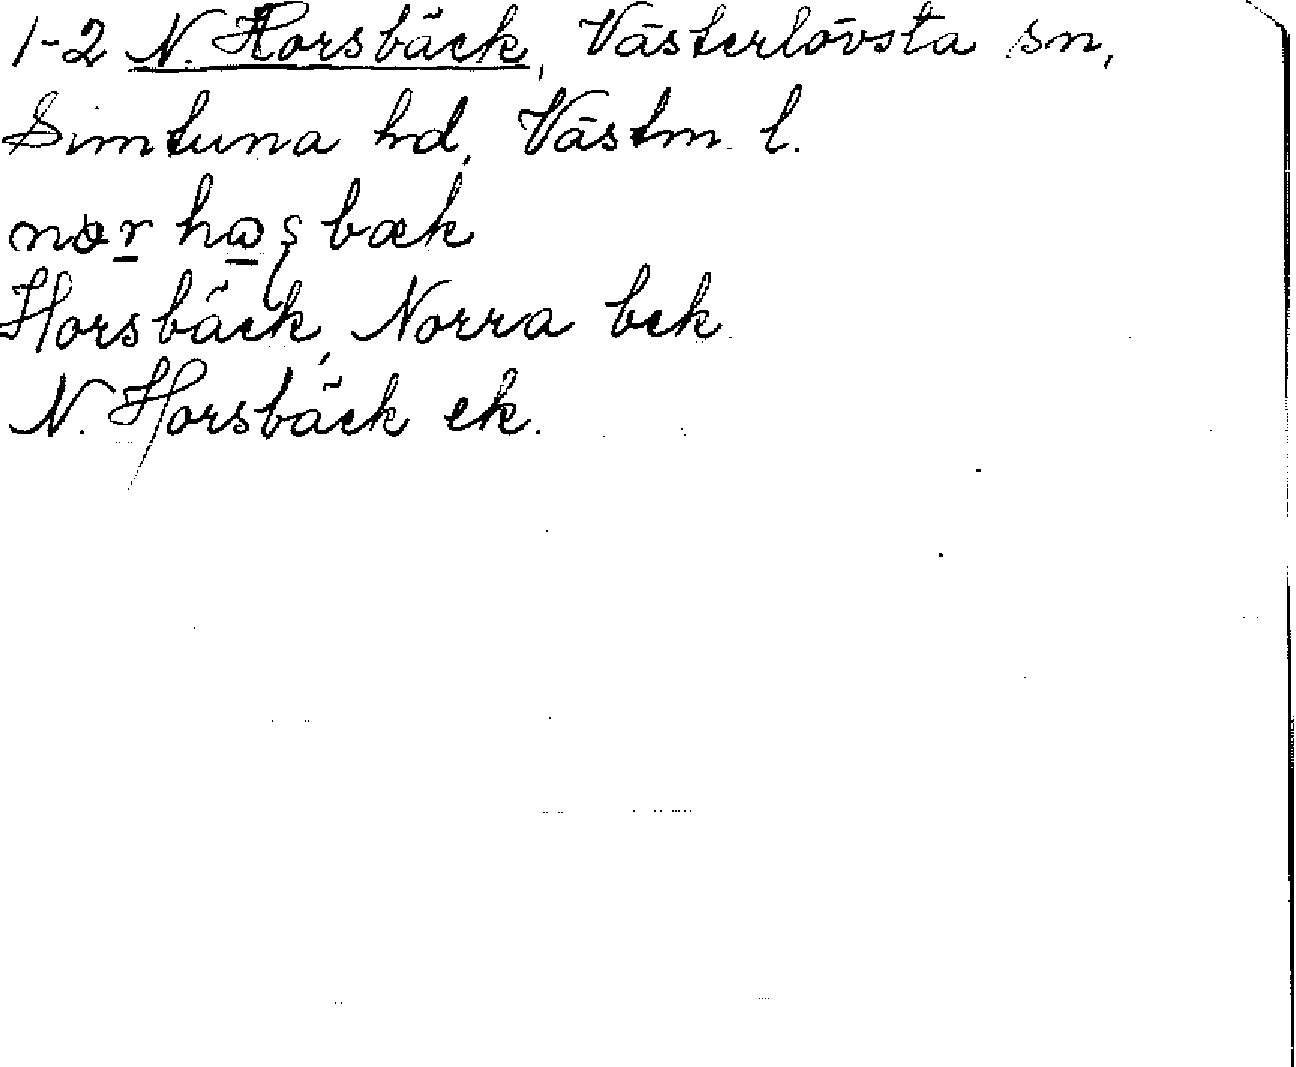 1-2 N. Horsbäck, Västerlövsta sn,
Simtuna hd, Västm. l.
bæk
Horsbäck, Norra bek.
N. Horsbäck ek.